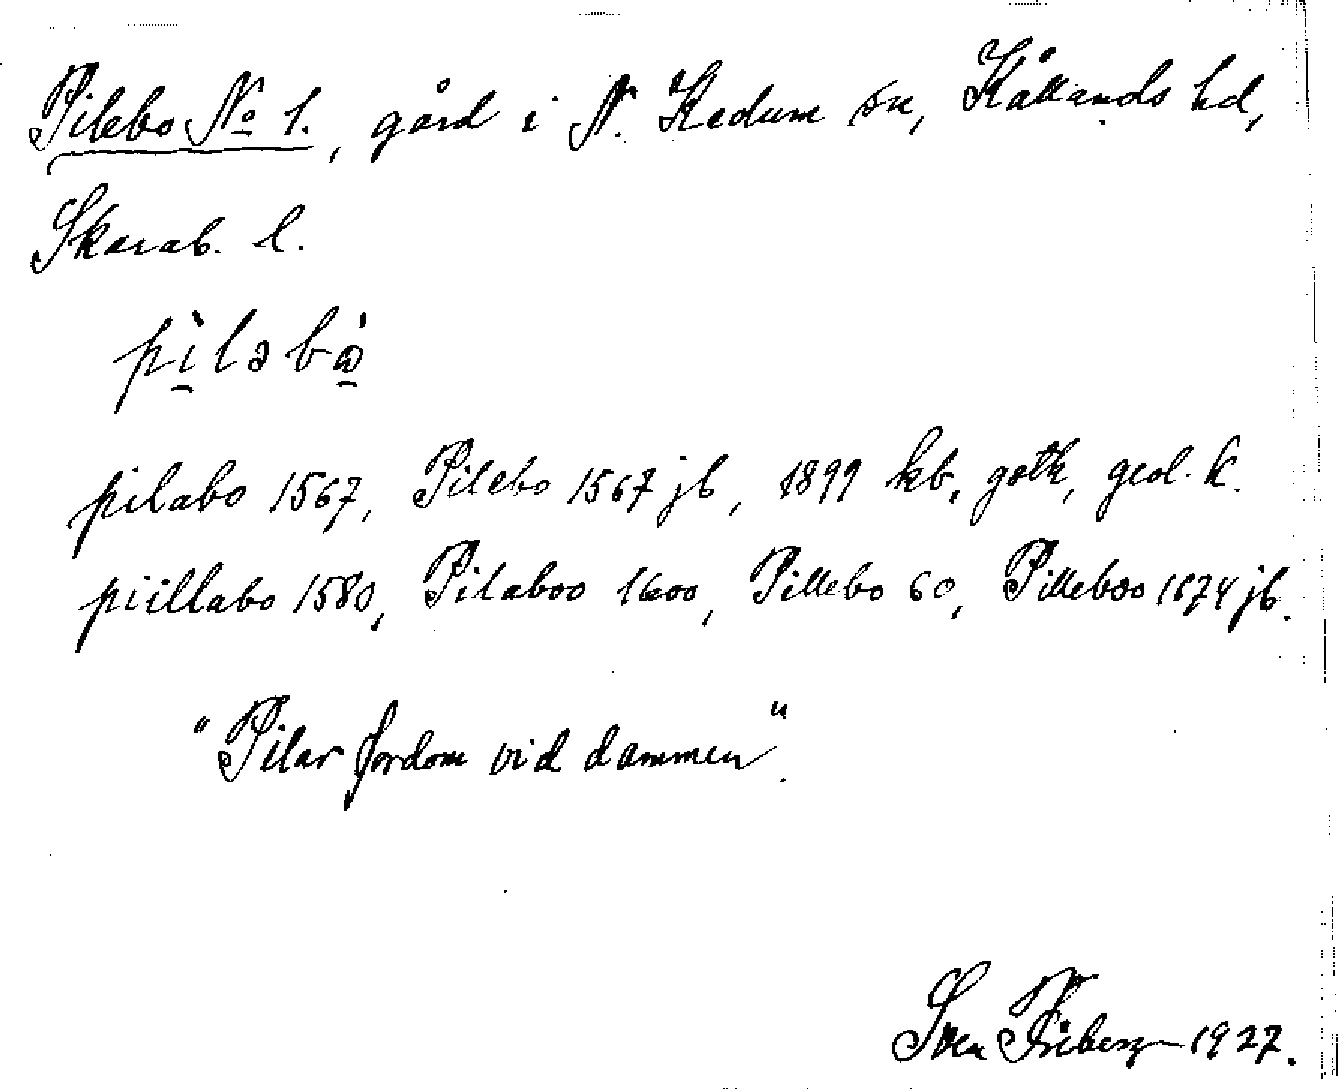 Pilebo No 1., gård i N. Kedum sn, Kållands hd,
Skarab. l.
pìləbὼ
pilabo 1567, Pilebo 1567 jb, 1899 kb, gstk, geol. k.
piillabo 1580, Pilaboo 1600, Pillebo 60, Pilleboo 1674 jb.
"Pilar fordom vid dammen".
Sven Friberg 1927.